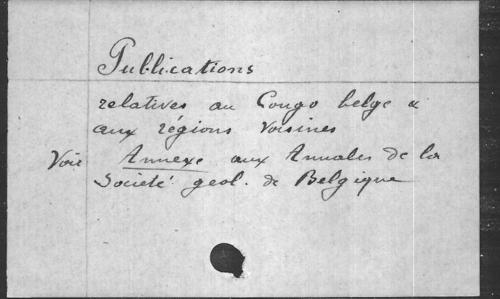 Publications
relatives au Congo belge &
aux régions voisines
Voir Annexe aux Annales de la
Société géol. de Belgique